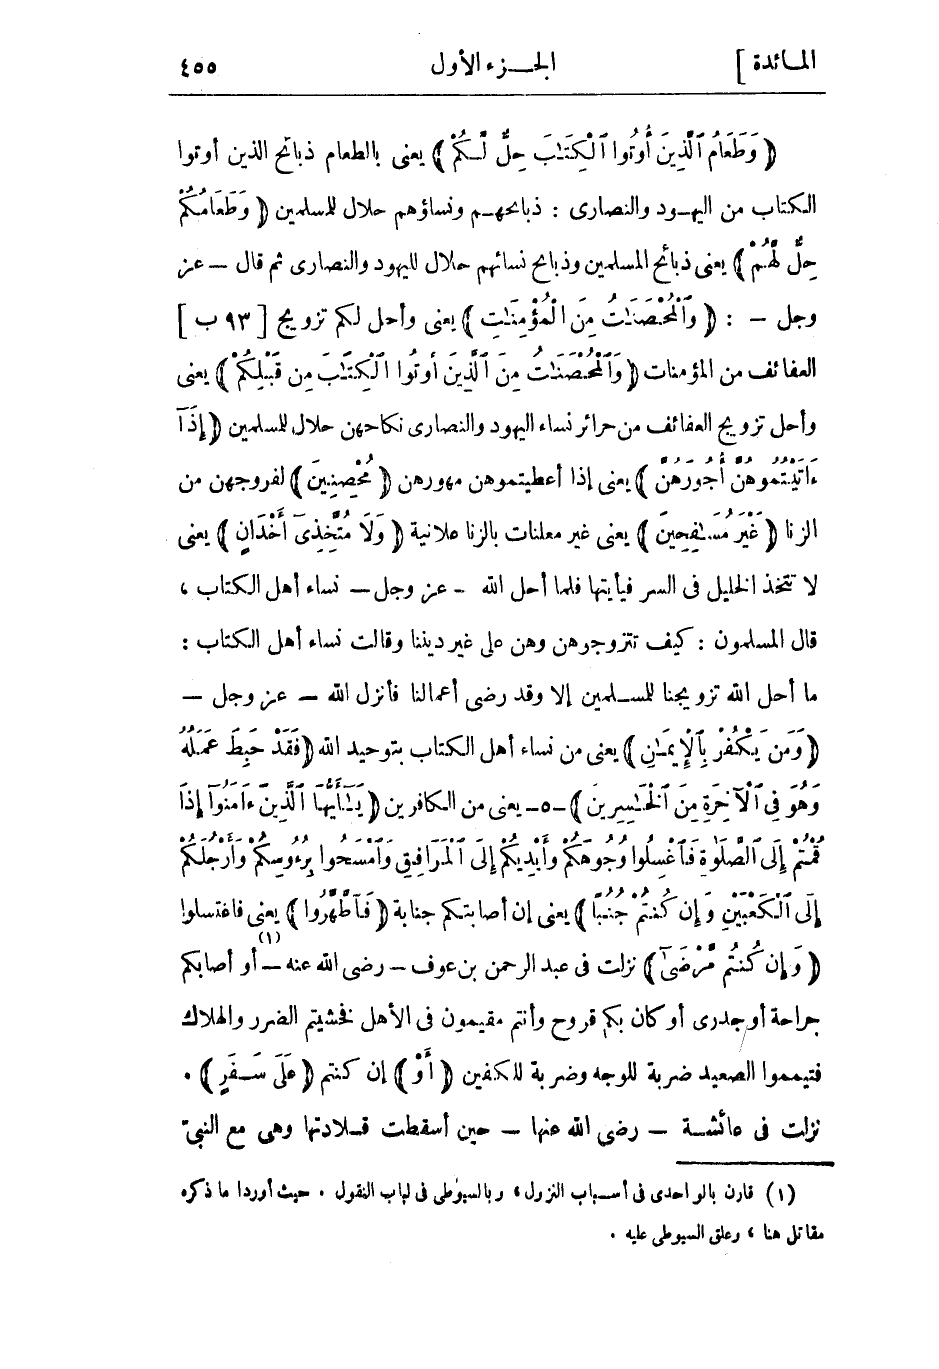 المائدة ] الجزء الأول ٤٥٥
﴿ وَطَعَامُ ٱلَّذِينَ أُوتُوا ٱلْكِتَـٰبَ حِلٌّ لَّكُمْ ﴾ يعنى بالطعام ذبائح الذين أوتوا
الكتاب من اليهود والنصارى : ذبائحهم ونساؤهم حلال للمسلمين ﴿ وَطَعَامُكُمْ
حِلٌّ لَّهُمْ ﴾ يعنى ذبائح المسلمين وذبائح نسائهم حلال لليهود والنصارى ثم قال — عز
وجل — : ﴿ وَٱلْمُحْصَنَـٰتُ مِنَ ٱلْمُؤْمِنَـٰتِ ﴾ يعنى وأحل لكم تزويج [ ٩٣ ب ]
العفائف من المؤمنات ﴿ وَٱلْمُحْصَنَـٰتُ مِنَ ٱلَّذِينَ أُوتُوا ٱلْكِتَـٰبَ مِن قَبْلِكُمْ ﴾ يعنى
وأحل تزويج العفائف من حرائر نساء اليهود والنصارى نكاحهن حلال للمسلمين ﴿ إِذَآ
ءَاتَيْتُمُوهُنَّ أُجُورَهُنَّ ﴾ يعنى إذا أعطيتموهن مهورهن ﴿ مُحْصِنِينَ ﴾ لفروجهن من
الزنا ﴿ غَيْرَ مُسَـٰفِحِينَ ﴾ يعنى غير معلنات بالزنا علانية ﴿ وَلَا مُتَّخِذِىٓ أَخْدَانٍ ﴾ يعنى
لا تتخذ الخليل فى السر فيأيتها فلما أحل الله - عز وجل — نساء أهل الكتاب ،
قال المسلمون : كيف تتزوجوهن وهن على غير ديننا وقالت نساء أهل الكتاب :
ما أحل الله تزويجنا للمسلمين إلا وقد رضى أعمالنا فأنزل الله — عز وجل —
﴿ وَمَن يَكْفُرْ بِٱلْإِيمَـٰنِ ﴾ يعنى من نساء أهل الكتاب بتوحيد الله ﴿ فَقَدْ حَبِطَ عَمَلُهُ
وَهُوَ فِى ٱلْآخِرَةِ مِنَ ٱلْخَـٰسِرِينَ ﴾ -٥- يعنى من الكافرين ﴿ يَـٰٓأَيُّهَا ٱلَّذِينَ ءَامَنُوٓا إِذَا
قُمْتُمْ إِلَى ٱلصَّلَوٰةِ فَٱغْسِلُوا وُجُوهَكُمْ وَأَيْدِيَكُمْ إِلَى ٱلْمَرَافِقِ وَٱمْسَحُوا بِرُءُوسِكُمْ وَأَرْجُلَكُمْ
إِلَى ٱلْكَعْبَيْنِ وَإِن كُنتُمْ جُنُبًا ﴾ يعنى إن أصابتكم جنابة ﴿ فَٱطَّهَّرُوا ﴾ يعنى فاغتسلوا
﴿ وَإِن كُنتُم مَّرْضَىٰٓ ﴾ نزلت فى عبد الرحمن بن عوف — رضى الله عنه — (١) أو أصابكم
جراحة أو جدرى أو كان بكم قروح وأنتم مقيمون فى الأهل فخشيتم الضرر والهلاك
فتيمموا الصعيد ضربة للوجه وضربة للكفين ﴿ أَوْ ﴾ إن كنتم ﴿ عَلَىٰ سَفَرٍ ﴾ .
نزلت فى عائشة — رضى الله عنها — حين أسقطت قلادتها وهى مع النبىّ
(١) قارن بالواحدى فى أسباب النزول ، وبالسيوطى فى لباب النقول . حيث أوردا ما ذكره
مقاتل هنا ، وعلق السيوطى عليه .